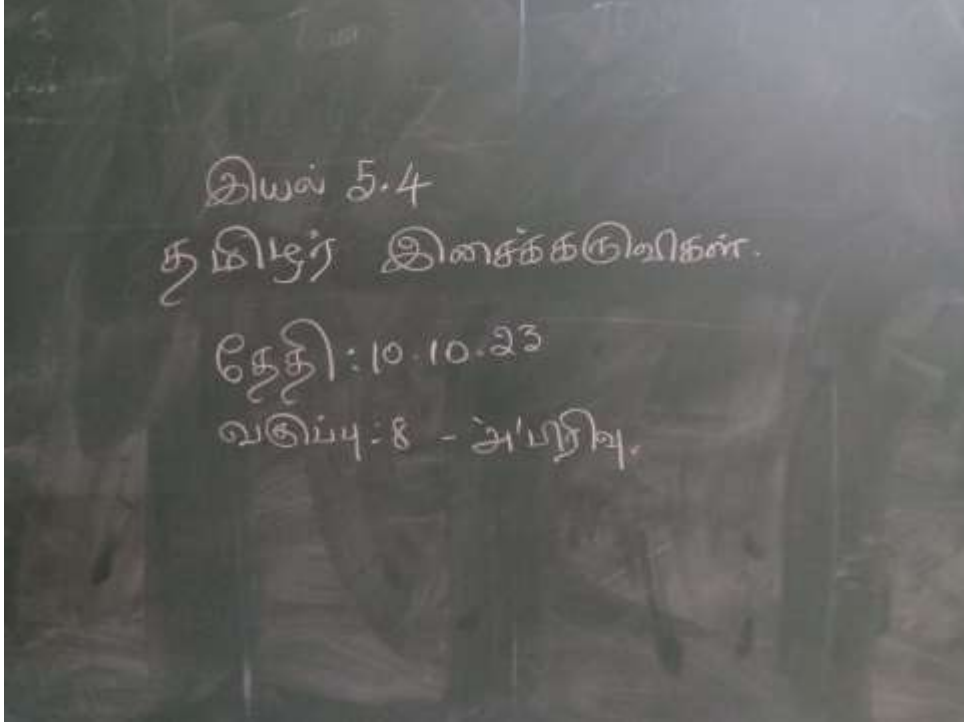 இயல் 5.4
தமிழர் இசைக்கருவிகள்.
தேதி : 10.10.23
வகுப்பு : 8 - 'அ' பிரிவு.